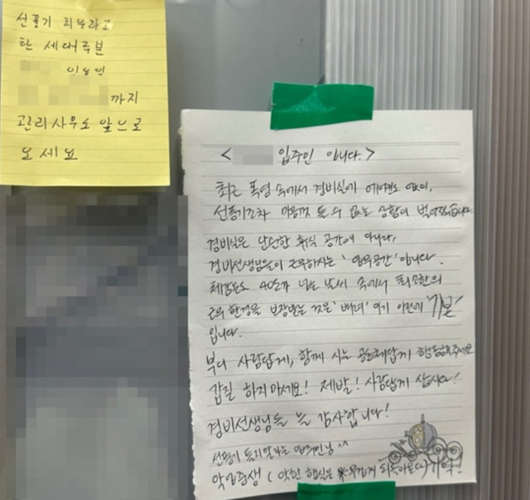 선풍기 치우라고
한 세대주분
까지
관리사무소 앞으로
오세요
< 입주인 입니다.>
최근 폭염 속에서 경비실에 에어컨도 없이,
선풍기조차 마음껏 둘 수 없는 상황이
경비실은 단순한 휴식 공간이 아니라,
경비선생님들이 근무하시는 '업무공간'입니다.
체감온도 40도가 넘는 날씨 속에서 최소한의
근무 환경을 보장받는 것은 '배려' 이기 이전에 기본
입니다.
부디 사람답게, 함께 사는 공동체답게 행동해주세요
갑질 하지마세요! 제발! 사람답게 삽시다!
경비선생님들 늘 감사합니다!
선풍기
악업중생 ( 악한